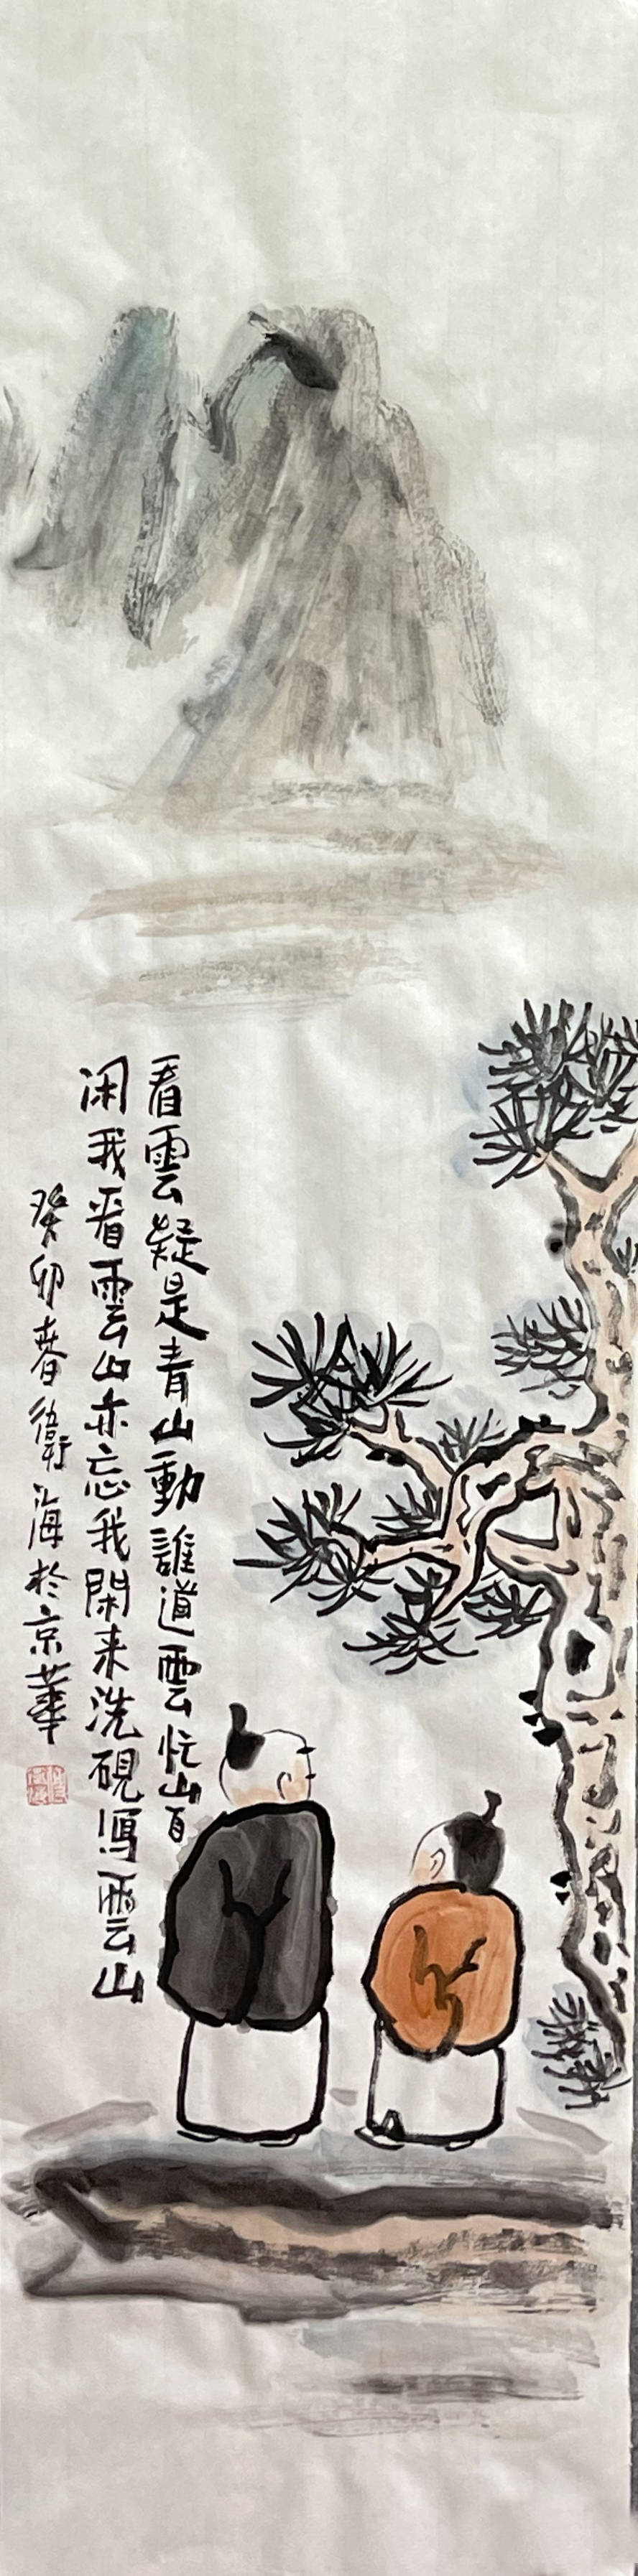 看雲疑是青山動誰道雲忙山自
闲我看雲山亦忘我閑来洗硯寫雲山
癸卯春衛海於京華